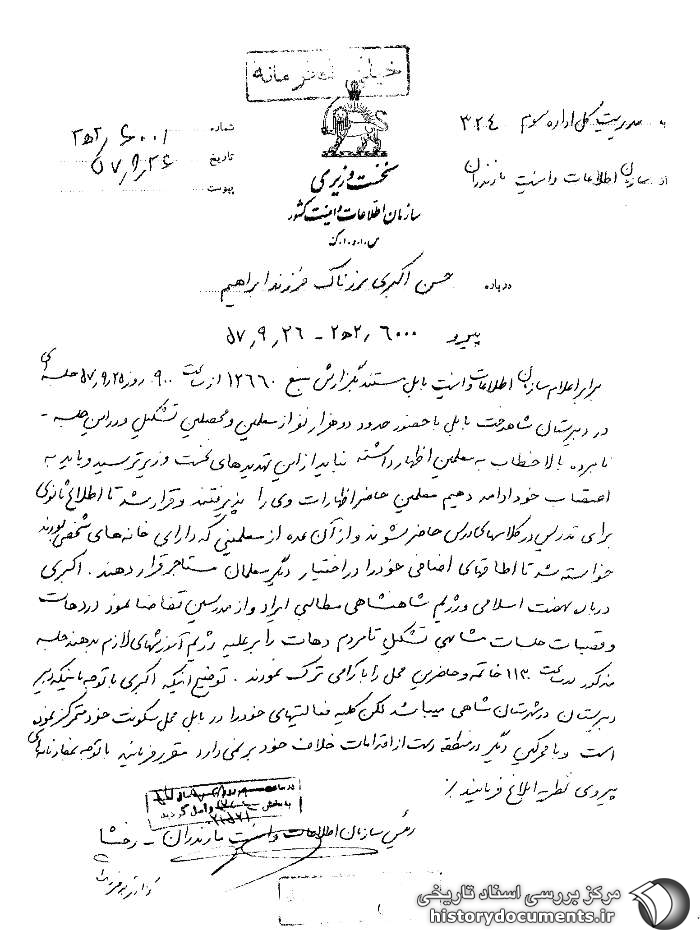 خیلی محرمانه
به مدیریت کل اداره سوم ۳۲۴
از سازمان اطلاعات و امنیت مازندران
شماره ۲ھ۲/۶۰۰۱
تاریخ ۵۷/۹/۲۶
پیوست
نخست وزیری
سازمان اطلاعات و امنیت کشور
س.ا.و.ا.ک
درباره حسن اکبری مرزناک فرزند ابراهیم
پیرو ۲ھ۲/۶۰۰۰ - ۵۷/۹/۲۶
برابر اعلام سازمان اطلاعات و امنیت بابل مستند بگزارش منبع ۱۲۶۶۰ از ساعت ۹۰۰ روز ۵۷/۹/۲۵ جلسه ای
در دبیرستان شاهدخت بابل با حضور حدود دو هزار نفر از معلمین و محصلین تشکیل و در این جلسه -
نامبرده بالا خطاب به معلمین اظهار داشته نباید از این تهدیدهای نخست وزیر ترسید و باید به
اعتصاب خود ادامه دهیم معلمین حاضر اظهارات وی را پذیرفتند و قرار شد تا اطلاع ثانوی
برای تدریس در کلاسهای درس حاضر نشوند و از آن عده از معلمینی که دارای خانه های شخصی بودند
خواسته شد تا اطاقهای اضافی خود را در اختیار دیگر معلمان مستاجر قرار دهند . اکبری
درباره نهضت اسلامی و رژیم شاهنشاهی مطالبی ایراد و از مدرسین تقاضا نمود در دهات
و قصبات جلسات مشابهی تشکیل تا مردم دهات را بر علیه رژیم آموزشهای لازم بدهند جلسه
مذکور در ساعت ۱۱۳۰ خاتمه و حاضرین محل را با آرامی ترک نمودند . توضیح اینکه اکبری با توجه باینکه دبیر
دبیرستان در شهرستان شاهی میباشد لکن کلیه فعالیتهای خود را در بابل محل سکونت خود متمرکز نموده
است و با تحرکی دیگر در منطقه دست از اقدامات خلاف خود برنمی دارد مقرر فرمائید با توجه بمفاد نامه های
پیروی نظریه ابلاغ فرمایند /:
رئیس سازمان اطلاعات و امنیت مازندران - رخشا
مرکز بررسی اسناد تاریخی
historydocuments.ir